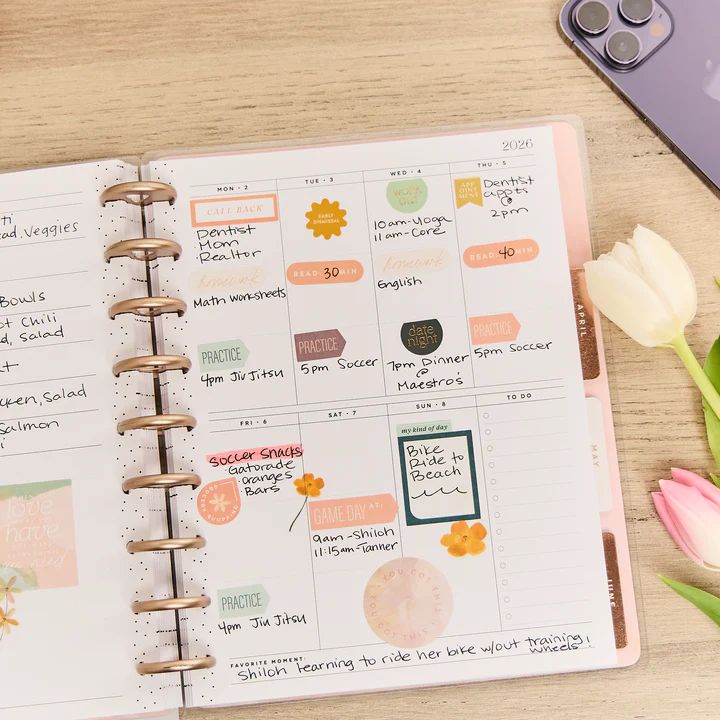 ead, Veggies
Bowls
ot Chili
d, salad
cken, Salad
Salmon
love
have
2026
MON • 2
CALL BACK
Dentist
Mom
Realtor
homework
Math Worksheets
PRACTICE
4pm Jiu Jitsu
TUE • 3
EARLY
DISMISSAL
READ: 30 MIN
PRACTICE
5pm Soccer
WED • 4
work
out
10am-Yoga
11am-Core
homework
English
date
night
7pm Dinner
@
Maestro's
THU • 5
APP
OINT
MENT
Dentist
appt.
@
2pm
READ: 40 MIN
PRACTICE
5pm Soccer
FRI • 6
Soccer Snacks
• Gatorade
• oranges
• Bars
GROCERY SHOPPING
PRACTICE
4pm Jiu Jitsu
SAT • 7
GAME DAY AT:
9am-Shiloh
11:15am-Tanner
YOU GOT THIS
SUN • 8
my kind of day
Bike
Ride to
Beach
TO DO
FAVORITE MOMENT:
Shiloh learning to ride her bike w/out training
wheels!
APRIL
MAY
JUNE